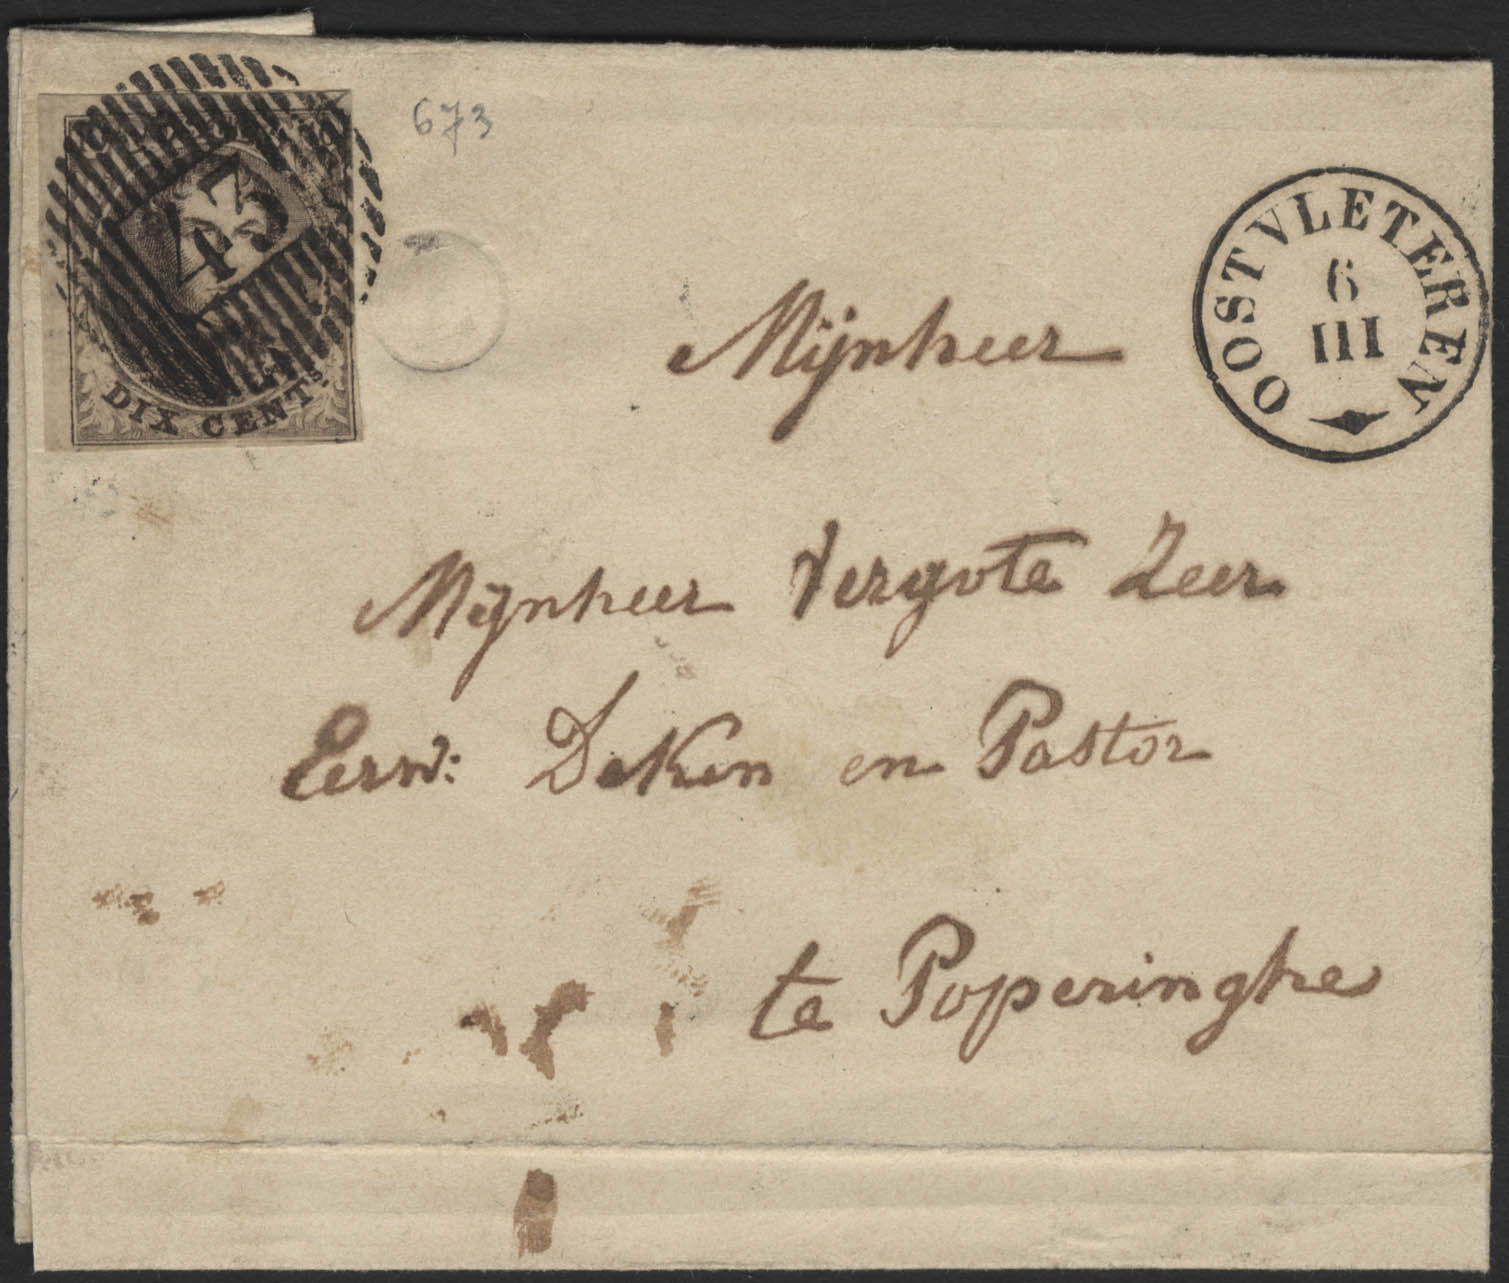 673
43
DIX CENTS.
OOSTVLETEREN
6
III
Mijnheer
Mijnheer Vergote Zeer
Eerw: Deken en Pastor
te Poperinghe